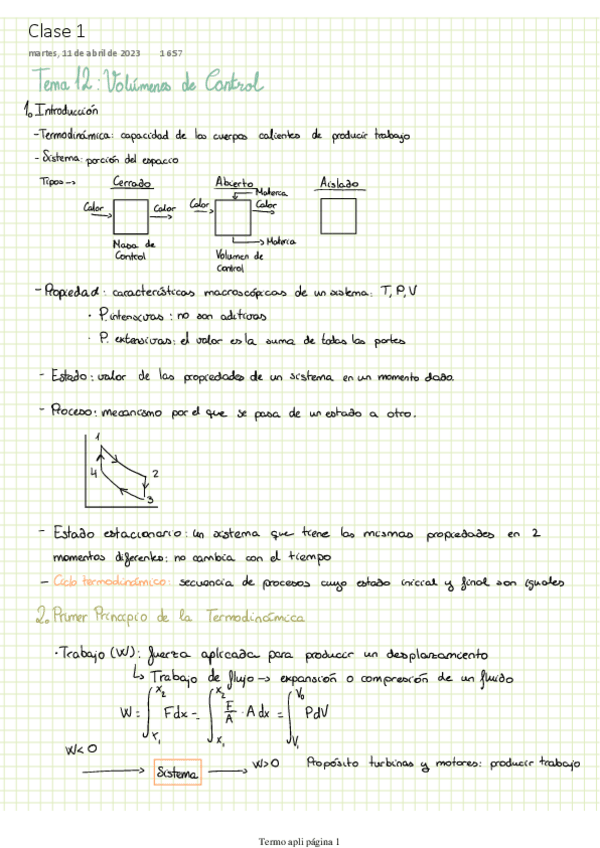 Clase 1
martes, 11 de abril de 2023 16:57
Tema 12: Volúmenes de Control
1. Introducción
- Termodinámica: capacidad de los cuerpos calientes de producir trabajo
- Sistema: porción del espacio
Tipos → Cerrado Abierto Aislado
Materia
Calor Calor Calor Calor
Materia
Masa de Control
Volumen de Control
- Propiedad: características macroscópicas de un sistema: T, P, V
· P. intensivas: no son aditivas
· P. extensivas: el valor es la suma de todas las partes
- Estado: valor de las propiedades de un sistema en un momento dado.
- Proceso: mecanismo por el que se pasa de un estado a otro.
1
4 2
3
- Estado estacionario: un sistema que tiene las mismas propiedades en 2
momentos diferentes: no cambia con el tiempo
- Ciclo termodinámico: secuencia de procesos cuyo estado inicial y final son iguales
2. Primer Principio de la Termodinámica
· Trabajo (W): fuerza aplicada para producir un desplazamiento
↳ Trabajo de flujo → expansión o compresión de un fluido
W = ∫_{x₁}^{x₂} Fdx = ∫_{x₁}^{x₂} F/A · A dx = ∫_{V₁}^{V₀} PdV
W<0 Sistema W>0 Propósito turbinas y motores: producir trabajo
Termo apli página 1